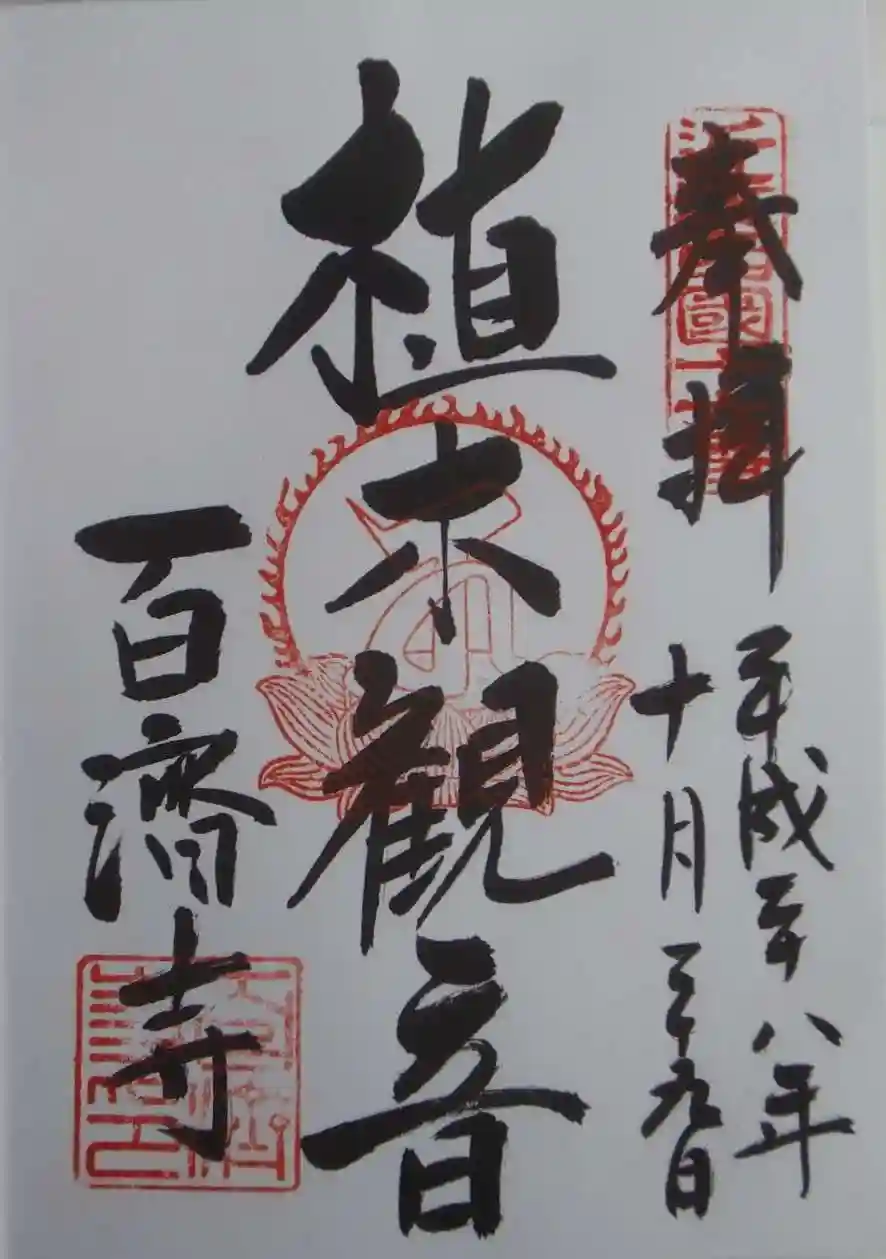 奉拝
平成二十八年
十月二十九日
植木観音
百濟寺